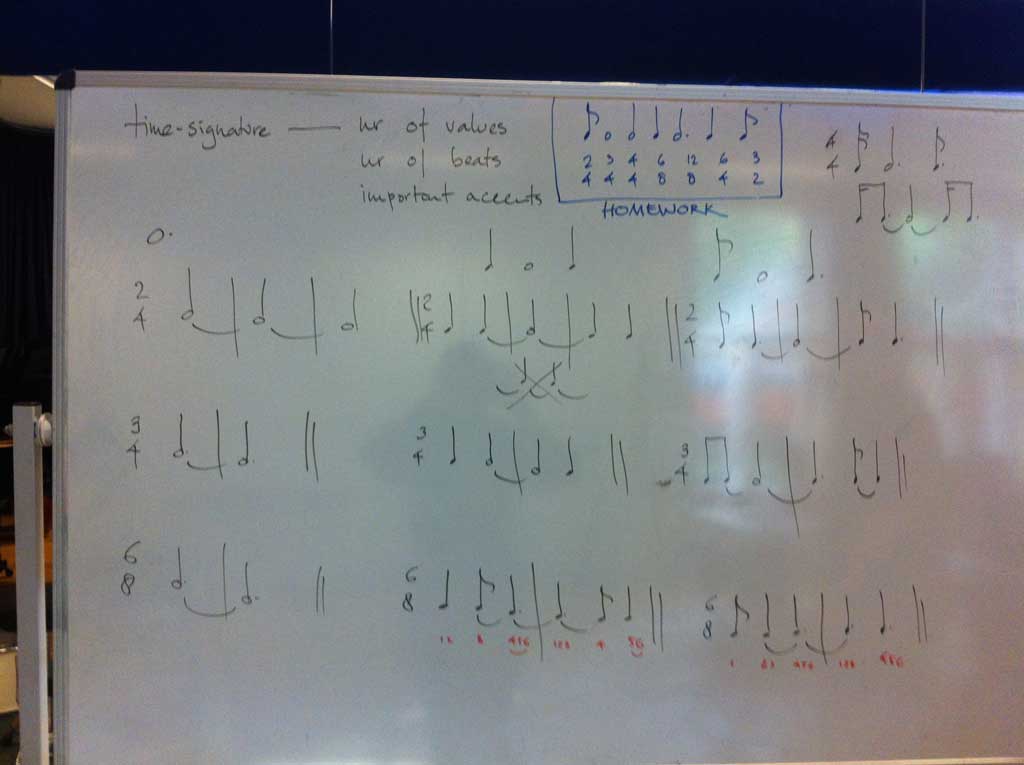 time-signature — nr of values
nr of beats
important accents
2 3 4 6 12 6 3
4 4 4 8 8 4 2
HOMEWORK
4
4
2
4
2
4
2
4
3
4
3
4
3
4
6
8
6
8
6
8
12 3 456 123 4 56
1 23 456 123 456